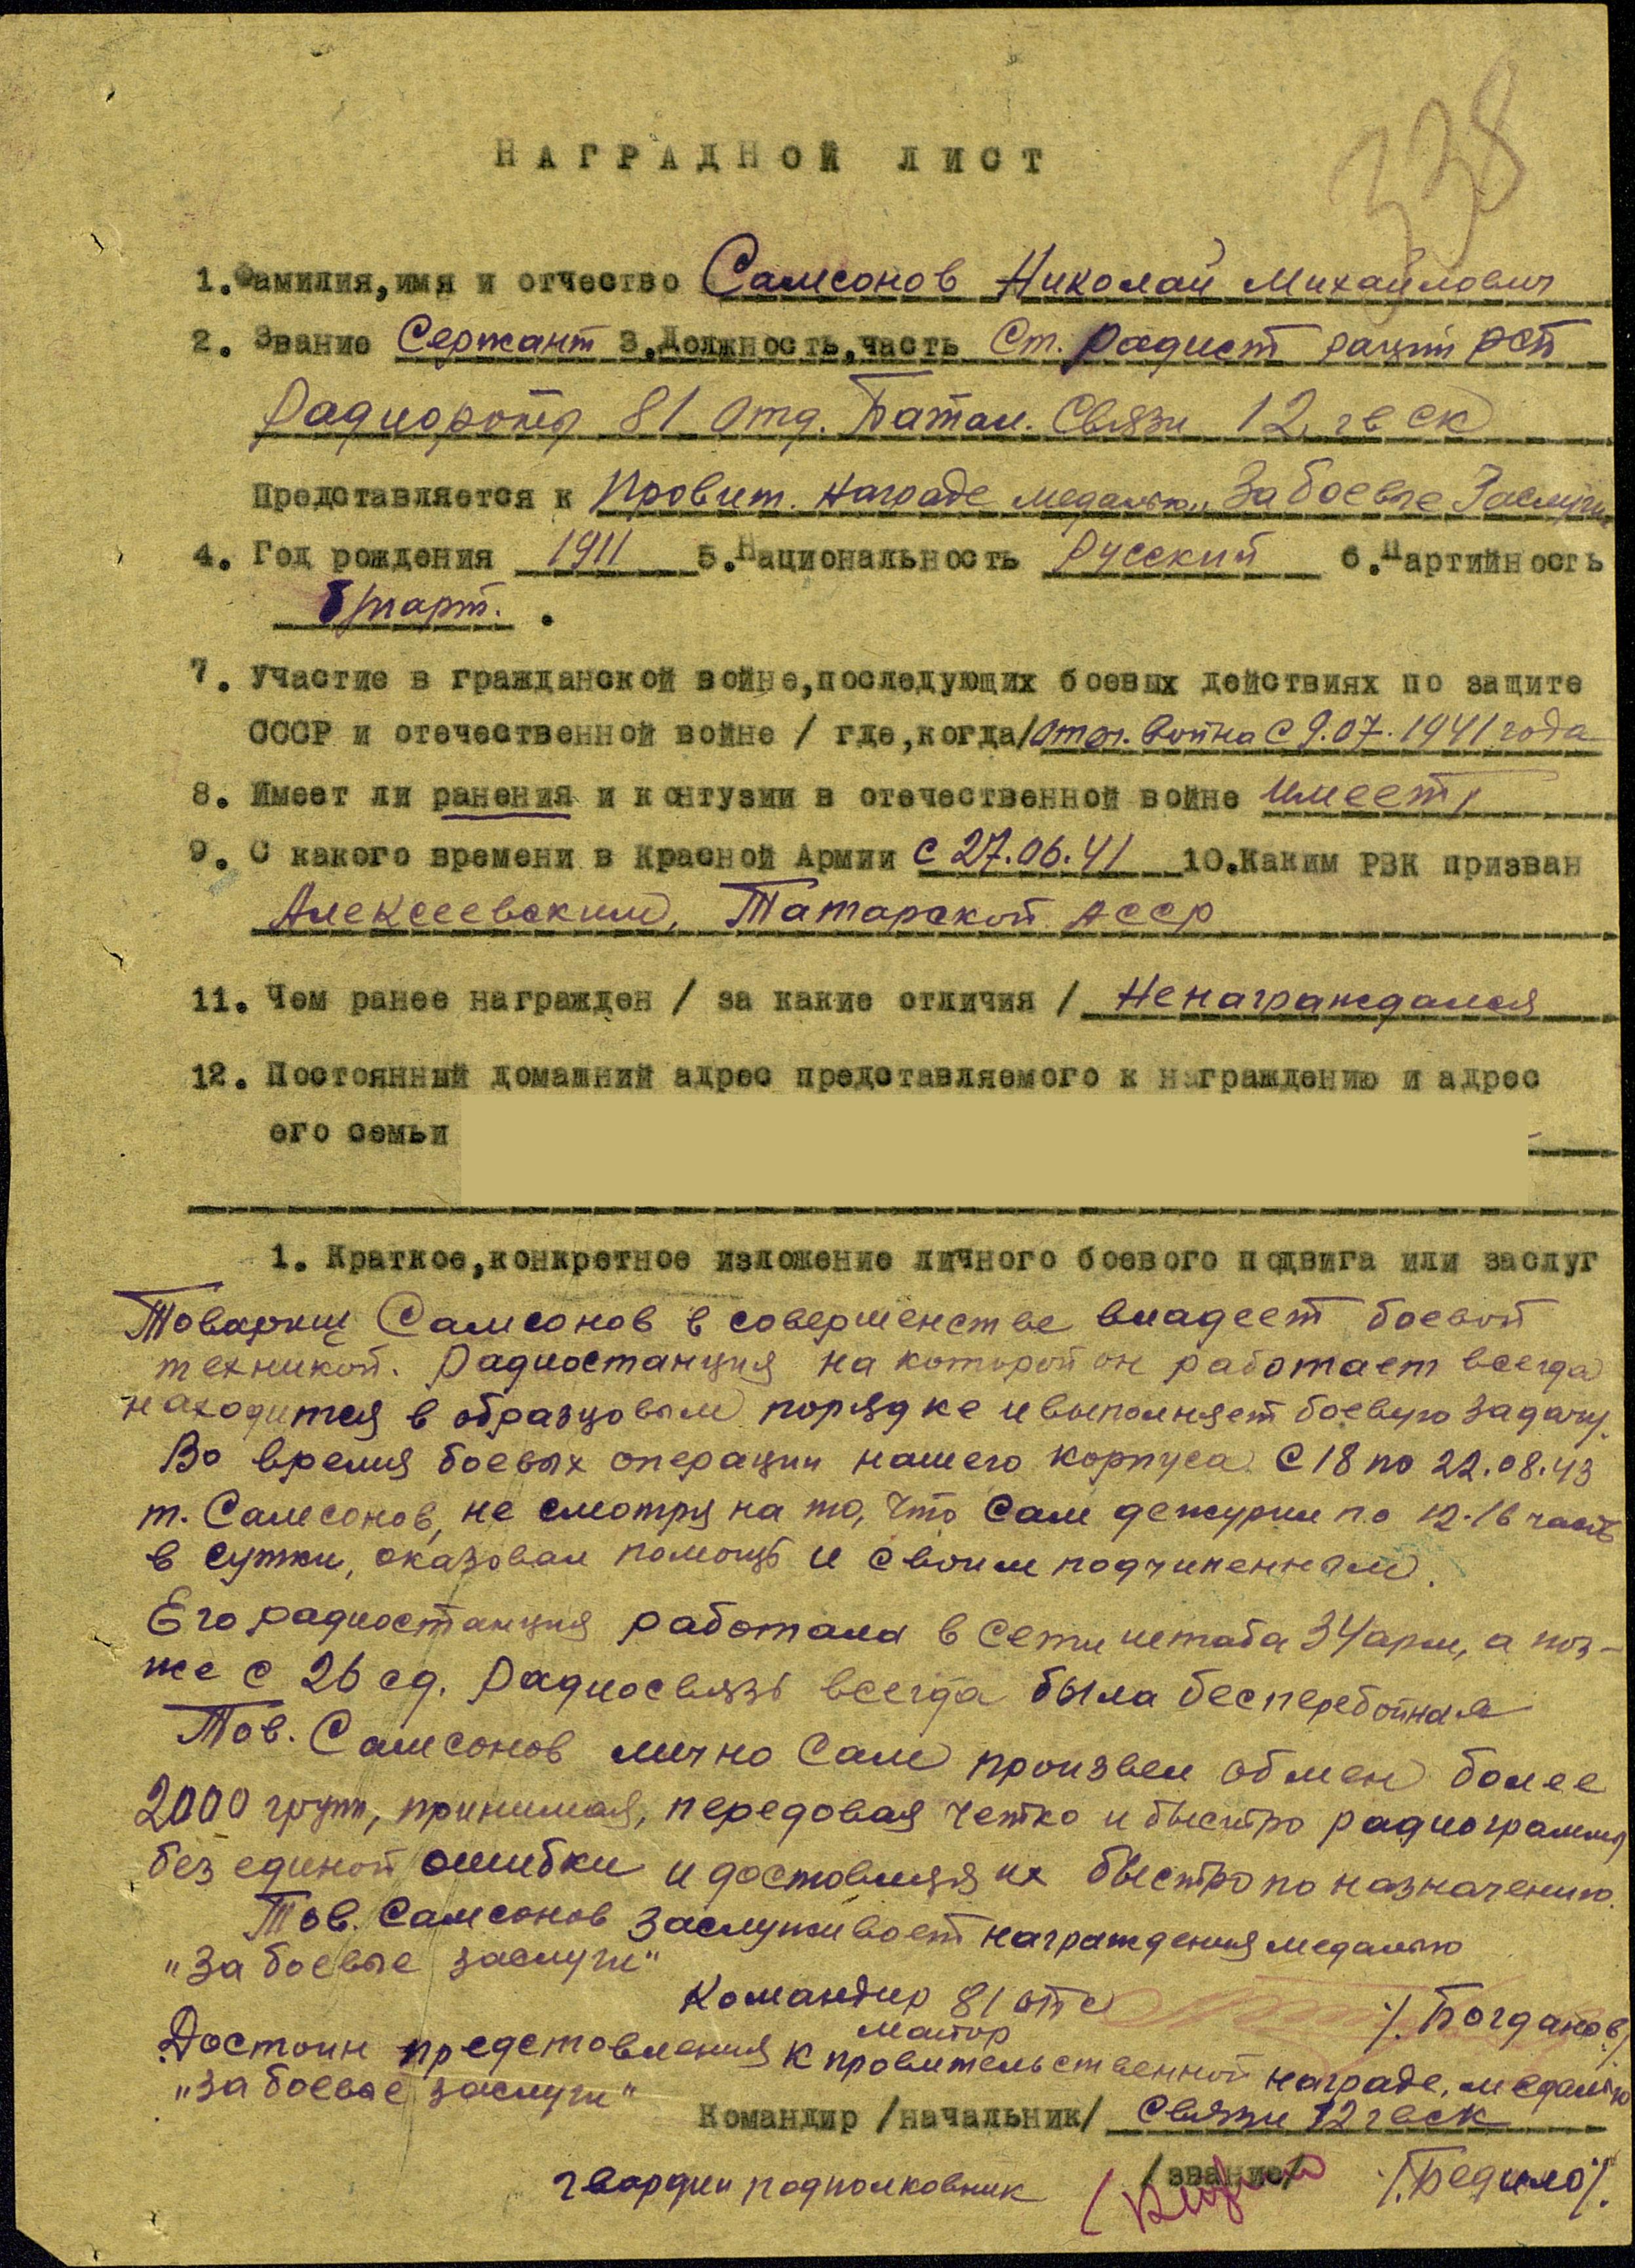 338
НАГРАДНОЙ ЛИСТ
1. Фамилия, имя и отчество Самсонов Николай Михайлович
2. Звание Сержант 3. Должность, часть Ст. радист рации РСБ
Радиороты 81 Отд. Батал. Связи 12 гв ск
Представляется к Правит. награде медалью „За боевые Заслуги"
4. Год рождения 1911 5. Национальность Русский 6. Партийность
б/парт.
7. Участие в гражданской войне, последующих боевых действиях по защите
СССР и отечественной войне / где, когда/ Отеч. война с 9.07.1941 года
8. Имеет ли ранения и контузии в отечественной войне имеет
9. С какого времени в Красной Армии с 27.06.41 10. Каким РВК призван
Алексеевским, Татарской АССР
11. Чем ранее награжден / за какие отличия / Не награждался
12. Постоянный домашний адрес представляемого к награждению и адрес
его семьи
1. Краткое, конкретное изложение личного боевого подвига или заслуг
Товарищ Самсонов в совершенстве владеет боевой
техникой. Радиостанция на которой он работает всегда
находится в образцовым порядке и выполняет боевую задачу.
Во время боевых операции нашего корпуса с 18 по 22.08.43
т. Самсонов, не смотря на то, что сам дежурил по 12-16 часов
в сутки, оказовал помощь и своим подчиненным.
Его радиостанция работала в сети штаба 34 арм, а поз-
же с 26 сд. Радиосвязь всегда была бесперебойная
Тов. Самсонов лично сам произвел обмен более
2000 групп, принимая, передовая четко и быстро радиограммы
без единой ошибки и доставляя их быстро по назначению.
Тов. Самсонов заслуживает награждения медалью
„За боевые заслуги"
Командир 81 обс /. Богданов/
майор
Достоин представления к правительственной награде, медалью
„За боевые заслуги"
Командир /начальник/ связи 12 гвск
/звание/
гвардии подполковник /. Бедило/.